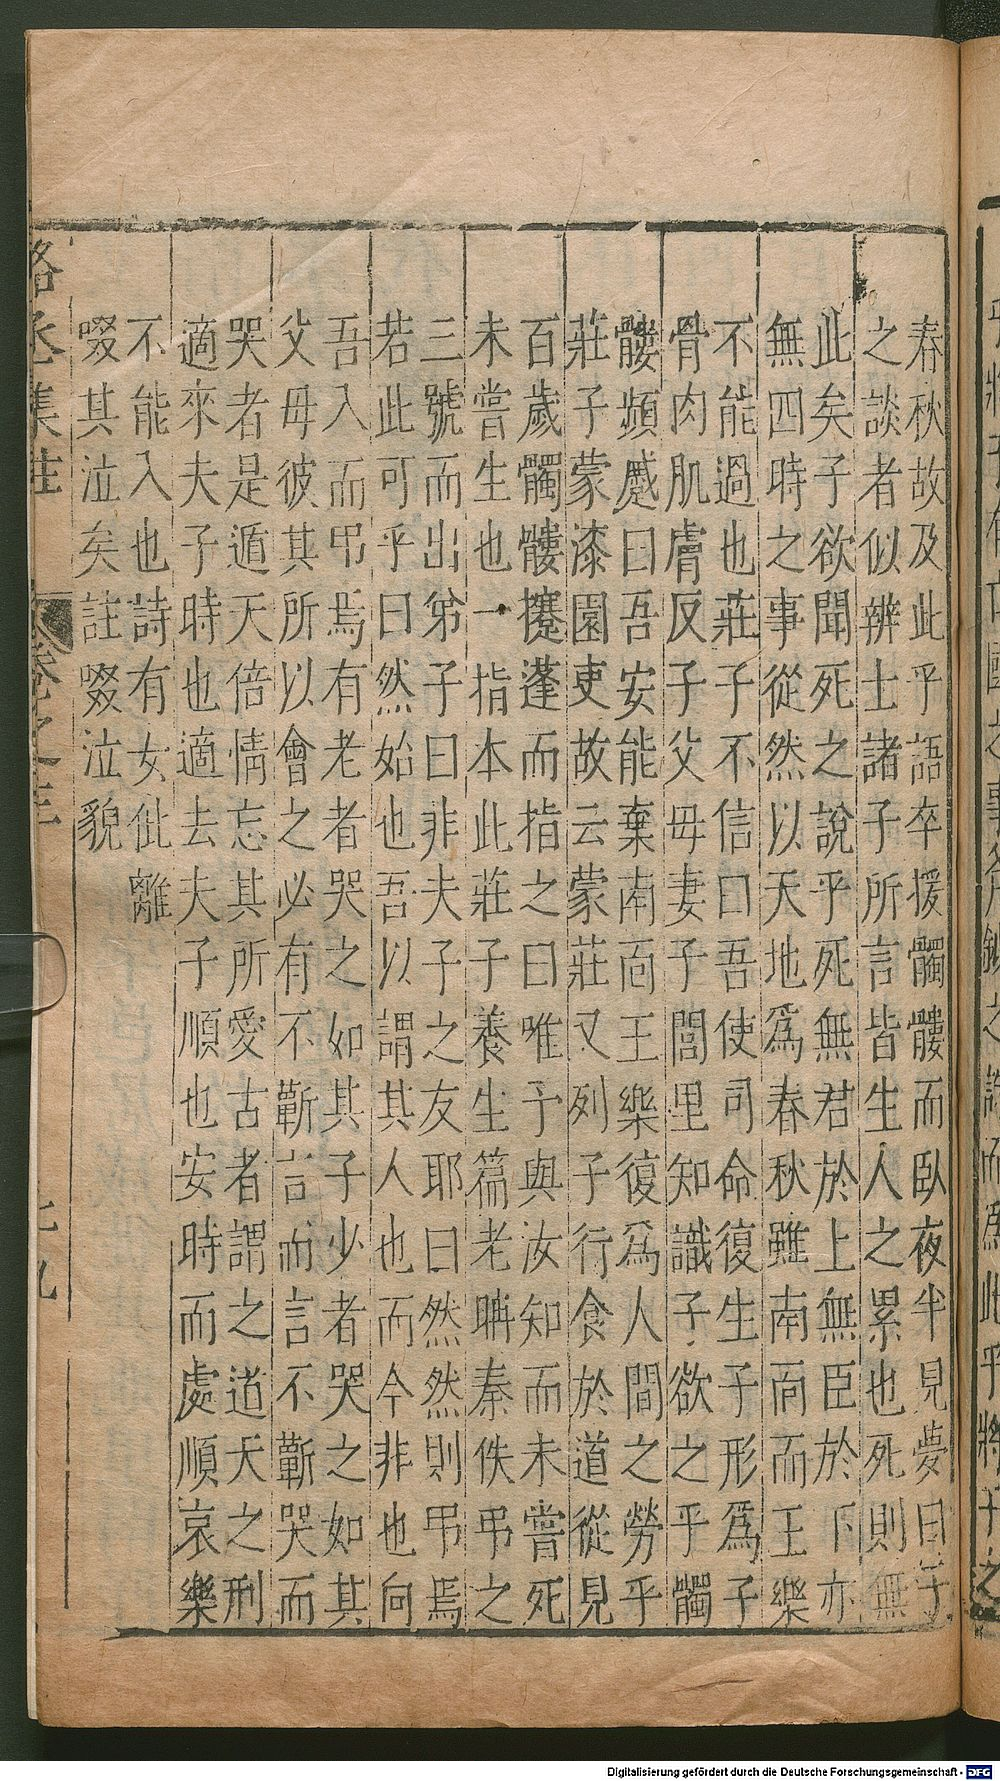 春秋故及此乎語卒援髑髏而臥夜半見夢曰子
之談者似辨士諸子所言皆生人之累也死則無
此矣子欲聞死之說乎死無君於上無臣於下亦
無四時之事從然以天地為春秋雖南面而王樂
不能過也莊子不信曰吾使司命復生子形為子
骨肉肌膚反子父母妻子閭里知識子欲之乎髑
髏頻蹙曰吾安能棄南面王樂復為人間之勞乎
莊子蒙漆園吏故云蒙莊又列子行食於道從見
百歲髑髏攓蓬而指之曰唯予與汝知而未嘗死
未嘗生也一指本此莊子養生篇老聃秦佚弔之
三號而出弟子曰非夫子之友耶曰然然則弔焉
若此可乎曰然始也吾以謂其人也而今非也向
吾入而弔焉有老者哭之如其子少者哭之如其
父母彼其所以會之必有不蘄言而言不蘄哭而
哭者是遁天倍情忘其所愛古者謂之道天之刑
適來夫子時也適去夫子順也安時而處順哀樂
不能入也詩有女仳離
啜其泣矣註啜泣貌
丞集註
卷之三
Digitalisierung gefördert durch die Deutsche Forschungsgemeinschaft - DFG